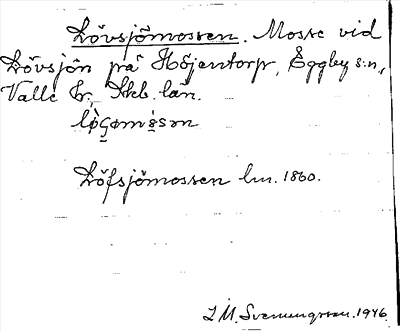 Lövsjömossen. Mosse vid
Lövsjön på Höjentorp, Eggby s:n,
Valle hr., Skb. län.
Löfsjömossen lm. 1860.
I.M. Svenungsson. 1946.